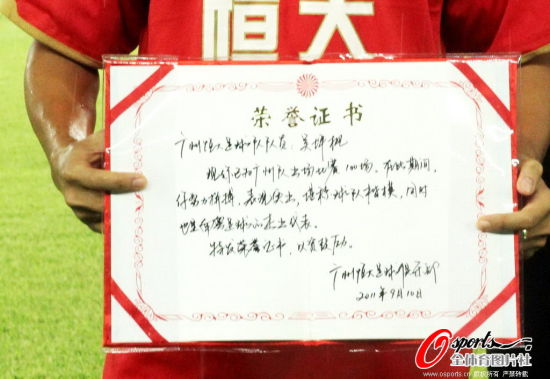 恒大
荣誉证书
广州恒大足球队队员:吴坪枫
现你已为广州队出场比赛100场。在此期间,
你努力拼搏,表现突出,堪称球队楷模,同时
也是足球的杰出代表。
特发荣誉证书,以资鼓励。
广州恒大足球俱乐部
2011年9月10日
Osports
全体育图片社
www.osports.cn 版权所有 严禁转载